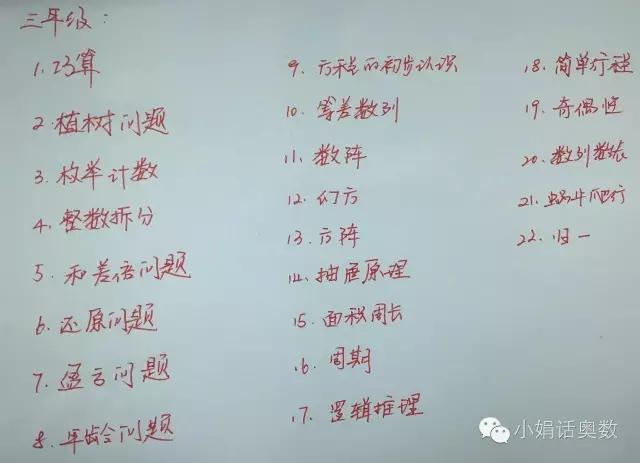 三年级：
1. 巧算
2. 植树问题
3. 枚举计数
4. 整数拆分
5. 和差倍问题
6. 还原问题
7. 盈亏问题
8. 年龄问题
9. 方程的初步认识
10. 等差数列
11. 数阵
12. 幻方
13. 方阵
14. 抽屉原理
15. 面积周长
16. 周期
17. 逻辑推理
18. 简单行程
19. 奇偶性
20. 数列数表
21. 蜗牛爬行
22. 归一
小娟话奥数